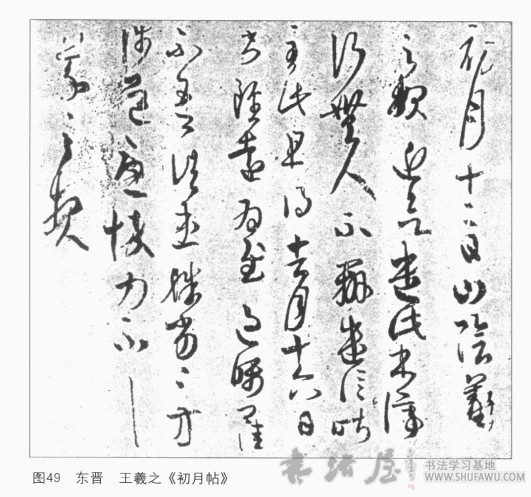 初月十二日山陰羲
之報近欲遣此書停
行無人不辦遣信昨
至此且得去月十六日
書雖遠為慰過囑卿佳
不吾諸患殊劣〻方
涉道憂悴力不一一
羲之報
图49 东晋 王羲之《初月帖》
书法屋
书法学习基地
WWW.SHUFAWU.COM